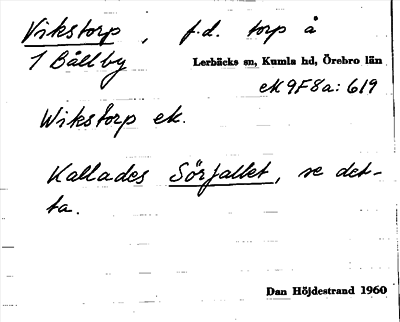 Vikstorp, f.d. torp å
1 Bållby
Lerbäcks sn, Kumla hd, Örebro län
ek 9F8a: 619
Wikstorp ek.
Kallades Sörfallet, se det-
ta.
Dan Höjdestrand 1960